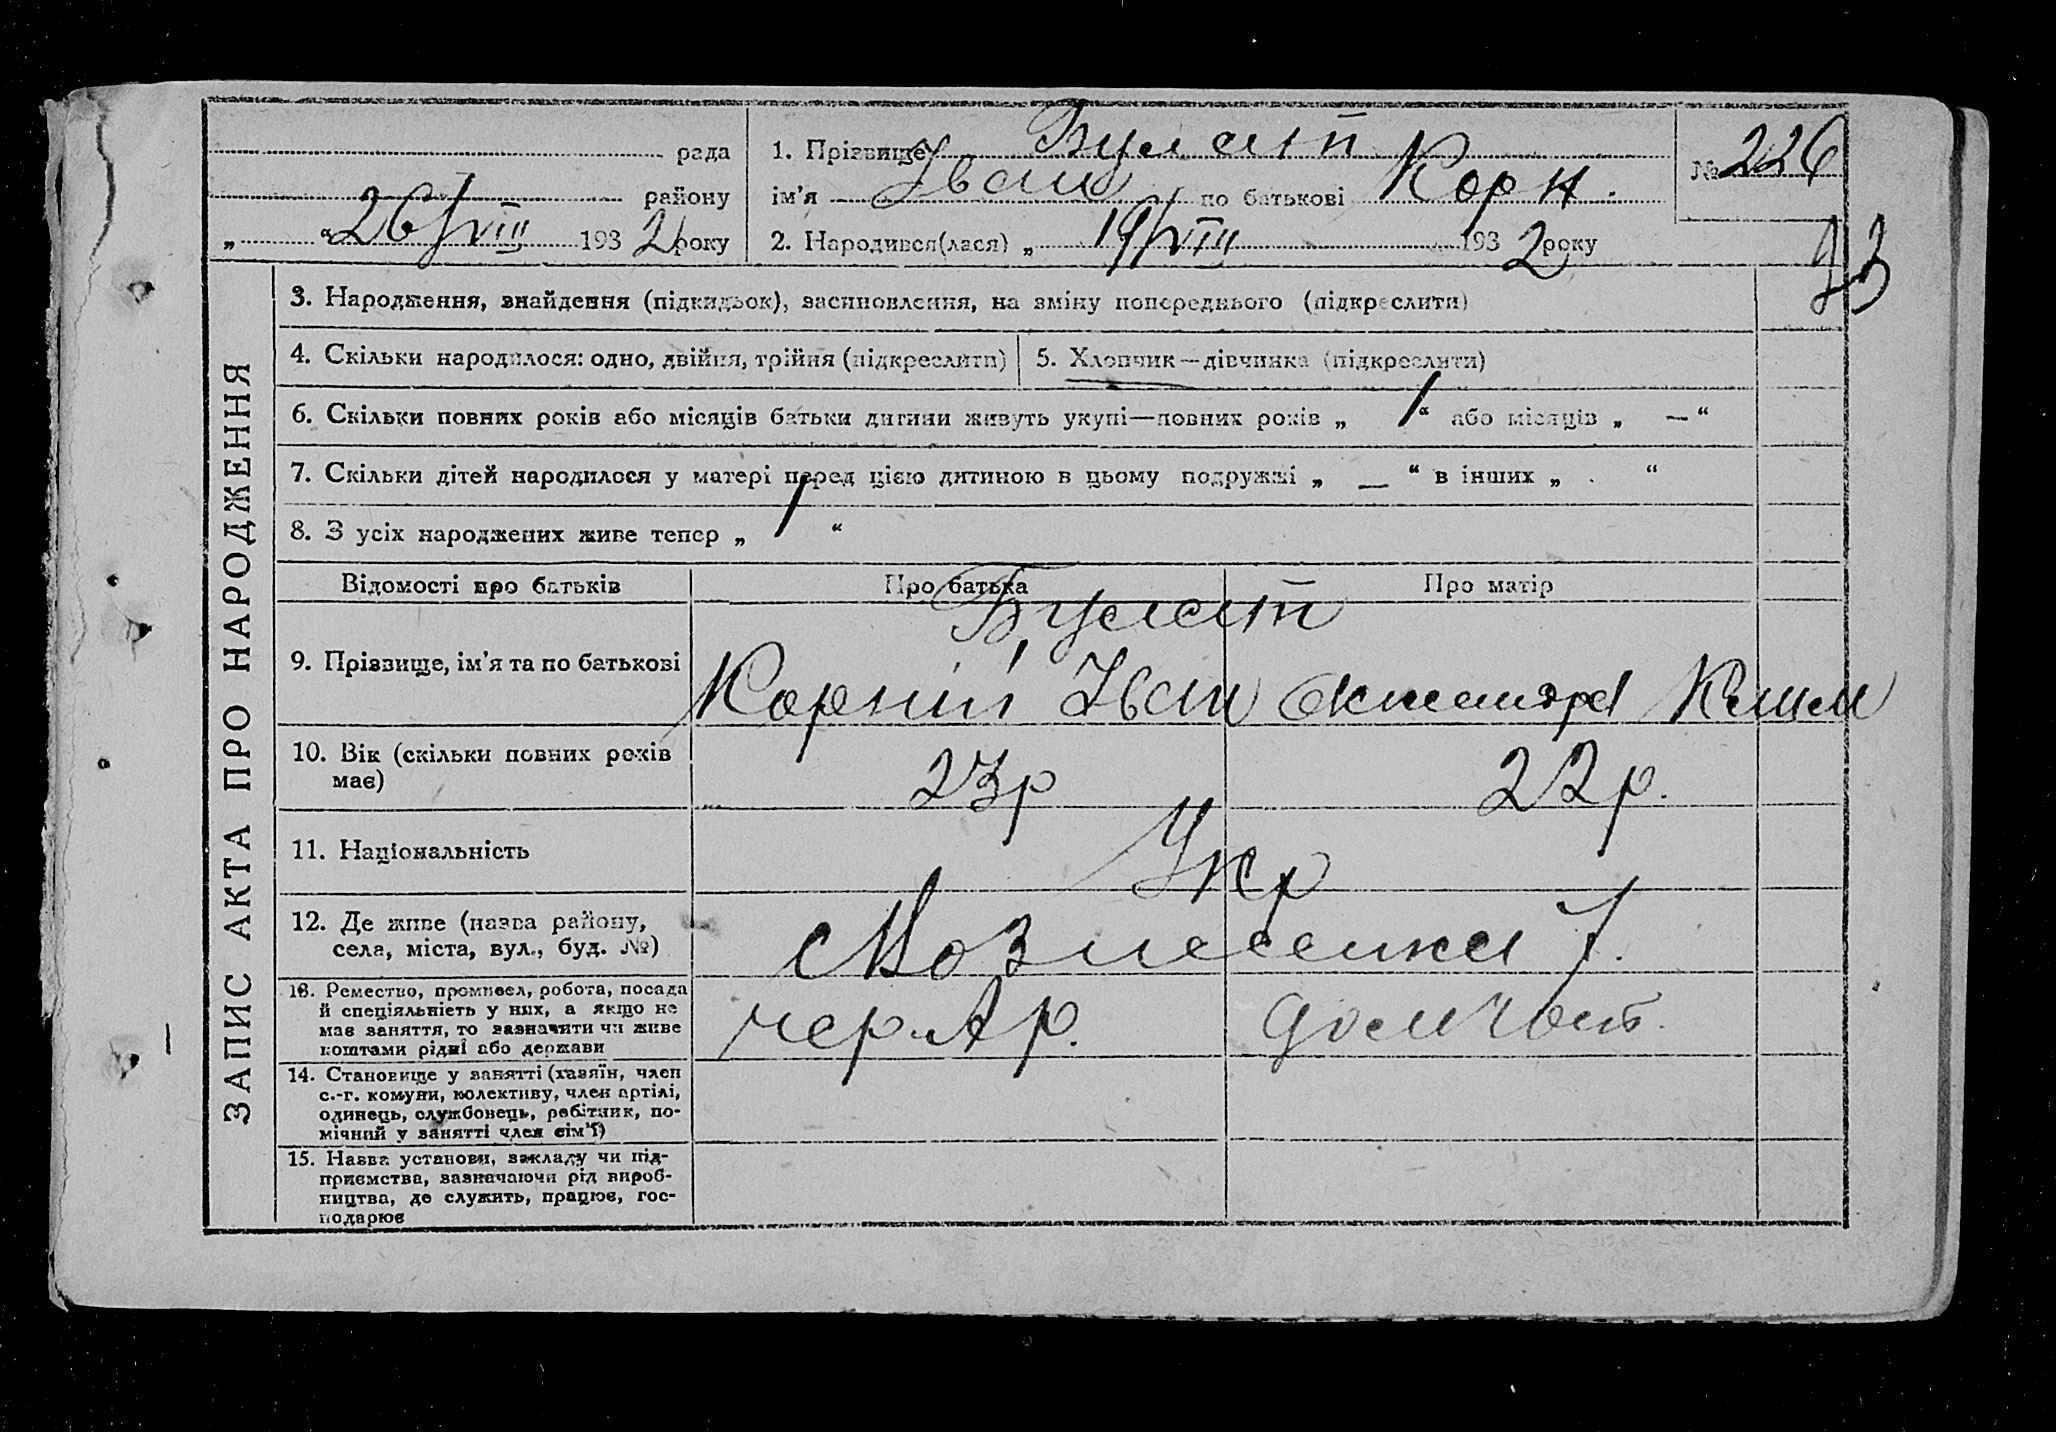 рада
1. Прізвище Булат
№ 226
району
ім'я Іван по батькові Корн.
„ “ 26/VIII 1932 року
2. Народився(лася) „ 19/VIII 1932 року
93
3. Народження, знайдення (підкидьок), засиновлення, на зміну попереднього (підкреслити)
4. Скільки народилося: одно, двійня, трійня (підкреслити)
5. Хлопчик—дівчинка (підкреслити)
6. Скільки повних років або місяців батьки дитини живуть укупі—повних років „ 1 “ або місяців „ — “
7. Скільки дітей народилося у матері перед цією дитиною в цьому подружжі „ — “ в інших „ “
8. З усіх народжених живе тепер „ 1 “
ЗАПИС АКТА ПРО НАРОДЖЕННЯ
Відомості про батьків
Про батька
Про матір
Булат
9. Прізвище, ім'я та по батькові
Корній Іван
Олександра
10. Вік (скільки повних років
має)
23р
22р.
11. Національність
Укр
12. Де живе (назва району,
села, міста, вул., буд. №)
Вознесенка 7.
13. Ремество, промисел, робота, посада
й спеціяльність у них, а якщо не
має заняття, то зазначити чи живе
коштами рідні або держави
чер
14. Становище у занятті (хазяїн, член
с.-г. комуни, колективу, член артілі,
одинець, службовець, робітник, по-
мічний у занятті член сім'ї)
15. Назва установи, закладу чи під-
приємства, зазначаючи рід вироб-
ництва, де служить, працює, гос-
подарює